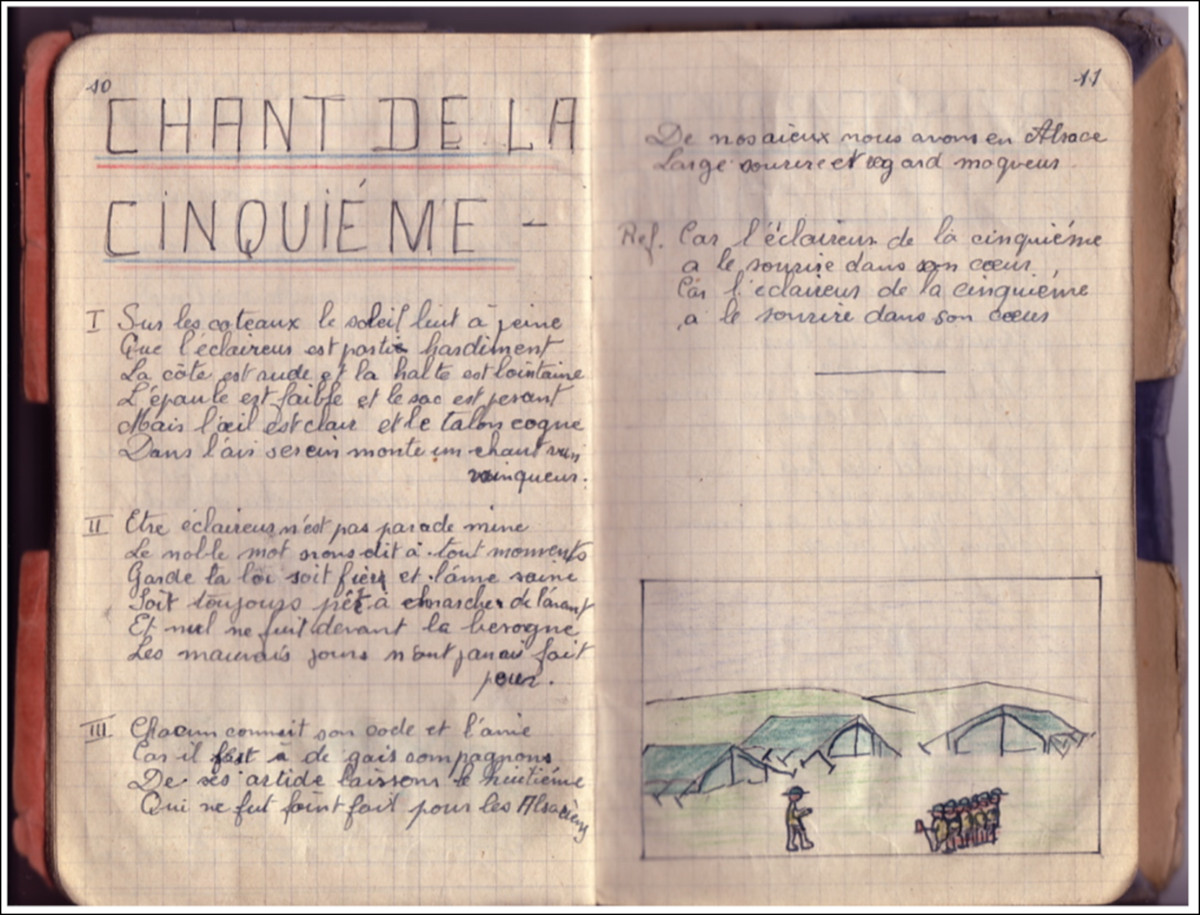 10
CHANT DE LA
CINQUIÉME -
I Sur les coteaux le soleil luit à peine
Que l'éclaireur est parti hardiment
La côte est rude et la halte est lointaine
L'épaule est faible et le sac est pesant
Mais l'œil est clair et le talon cogne
Dans l'air serein monte un chant
vainqueur.
II Etre éclaireur n'est pas parade mine
Le noble mot nous dit à tout moments
Garde ta loi soit fier et l'âme saine
Soit toujours prêt à marcher de l'avant
Et nul ne fuit devant la besogne
Les mauvais jours n'ont jamai fait
peur.
III Chacun connait son code et l'aime
Car il est à de gais compagnons
De ses artide laissons le huitiéme
Qui ne fut point fait pour les Alsaciens
11
De nos aieux nous avons en Alsace
Large sourire et regard moqueur
Ref. Car l'éclaireur de la cinquiéme
a le sourire dans son cœur
Car l'éclaireur de la cinquiéme
a le sourire dans son cœur